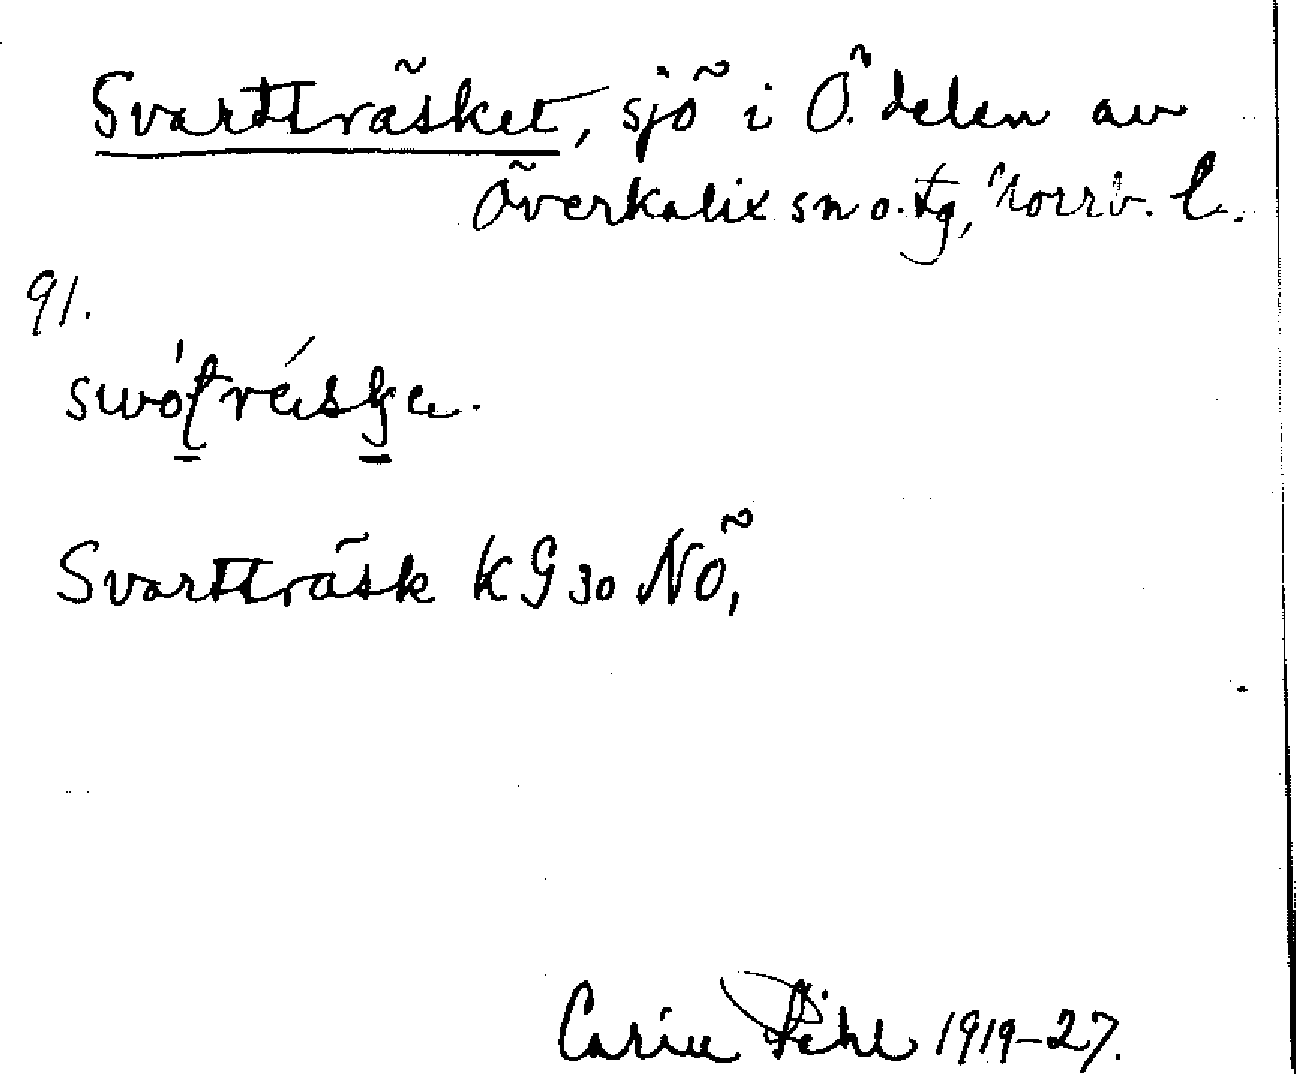 Svartträsket, sjö i Ö. delen av
Överkalix sn o. tg, Norrb. l.
91.
Svartträsk KG 30 NÖ,
Carin Pihl 1919-27.